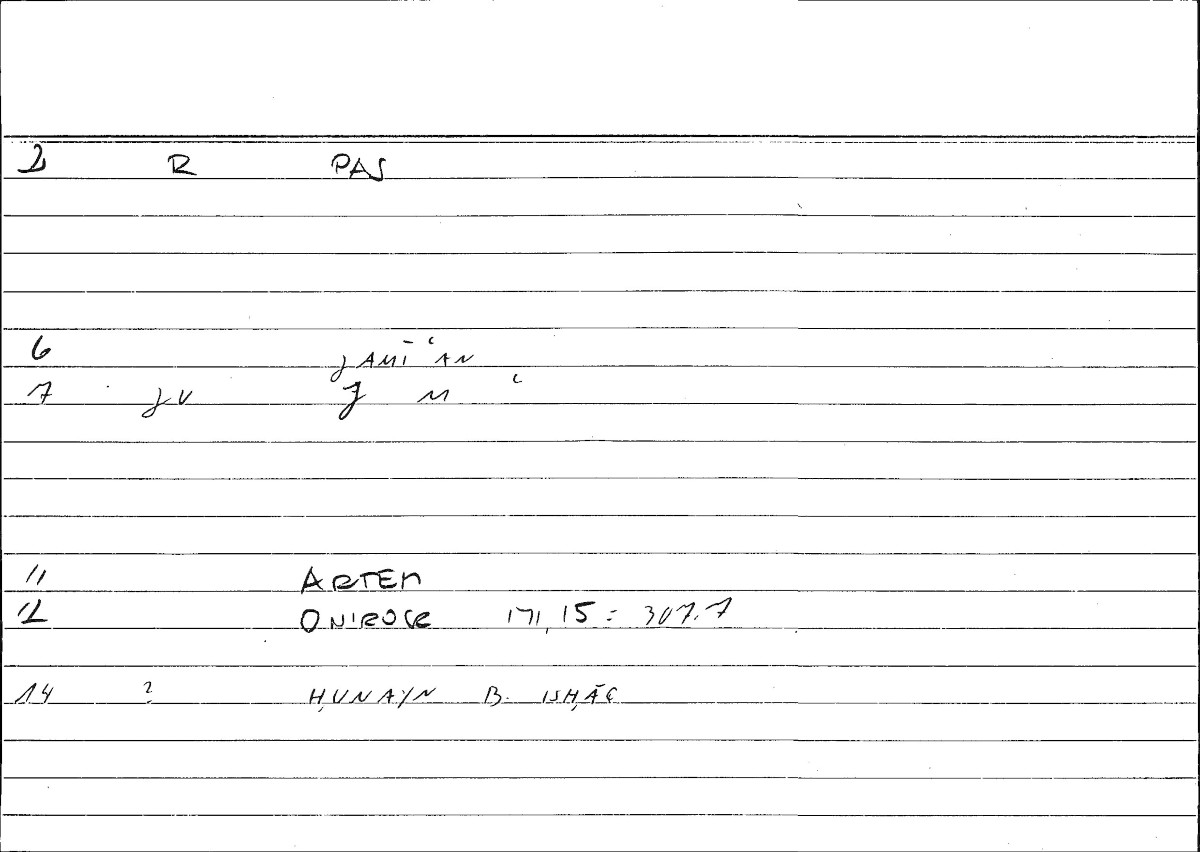 2 R PAS
6 JAMĪʿAN
7 JV J M ʿ
11 ARTEM
12 ONIROCR 171,15 = 307.7
14 ? ḤUNAYN B. ISḤĀQ